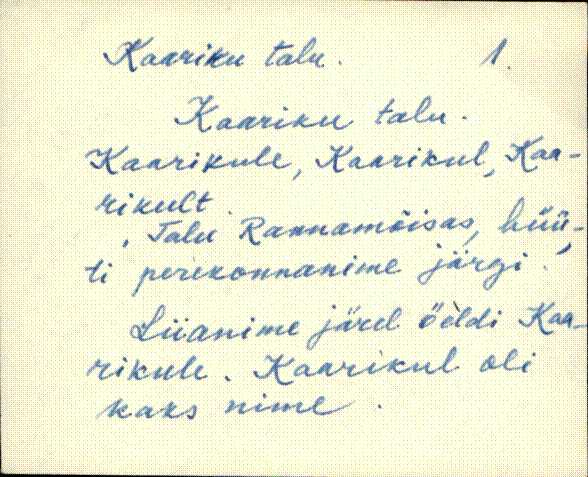 Kaariku talu. 1.
Kaariku talu.
Kaarikule, Kaarikul, Kaa-
rikult.
, Talu Rannamõisas, hüü-
ti perekonnanime järgi.'
Liianime järel öeldi Kaa-
rikule. Kaarikul oli
kaks nime.